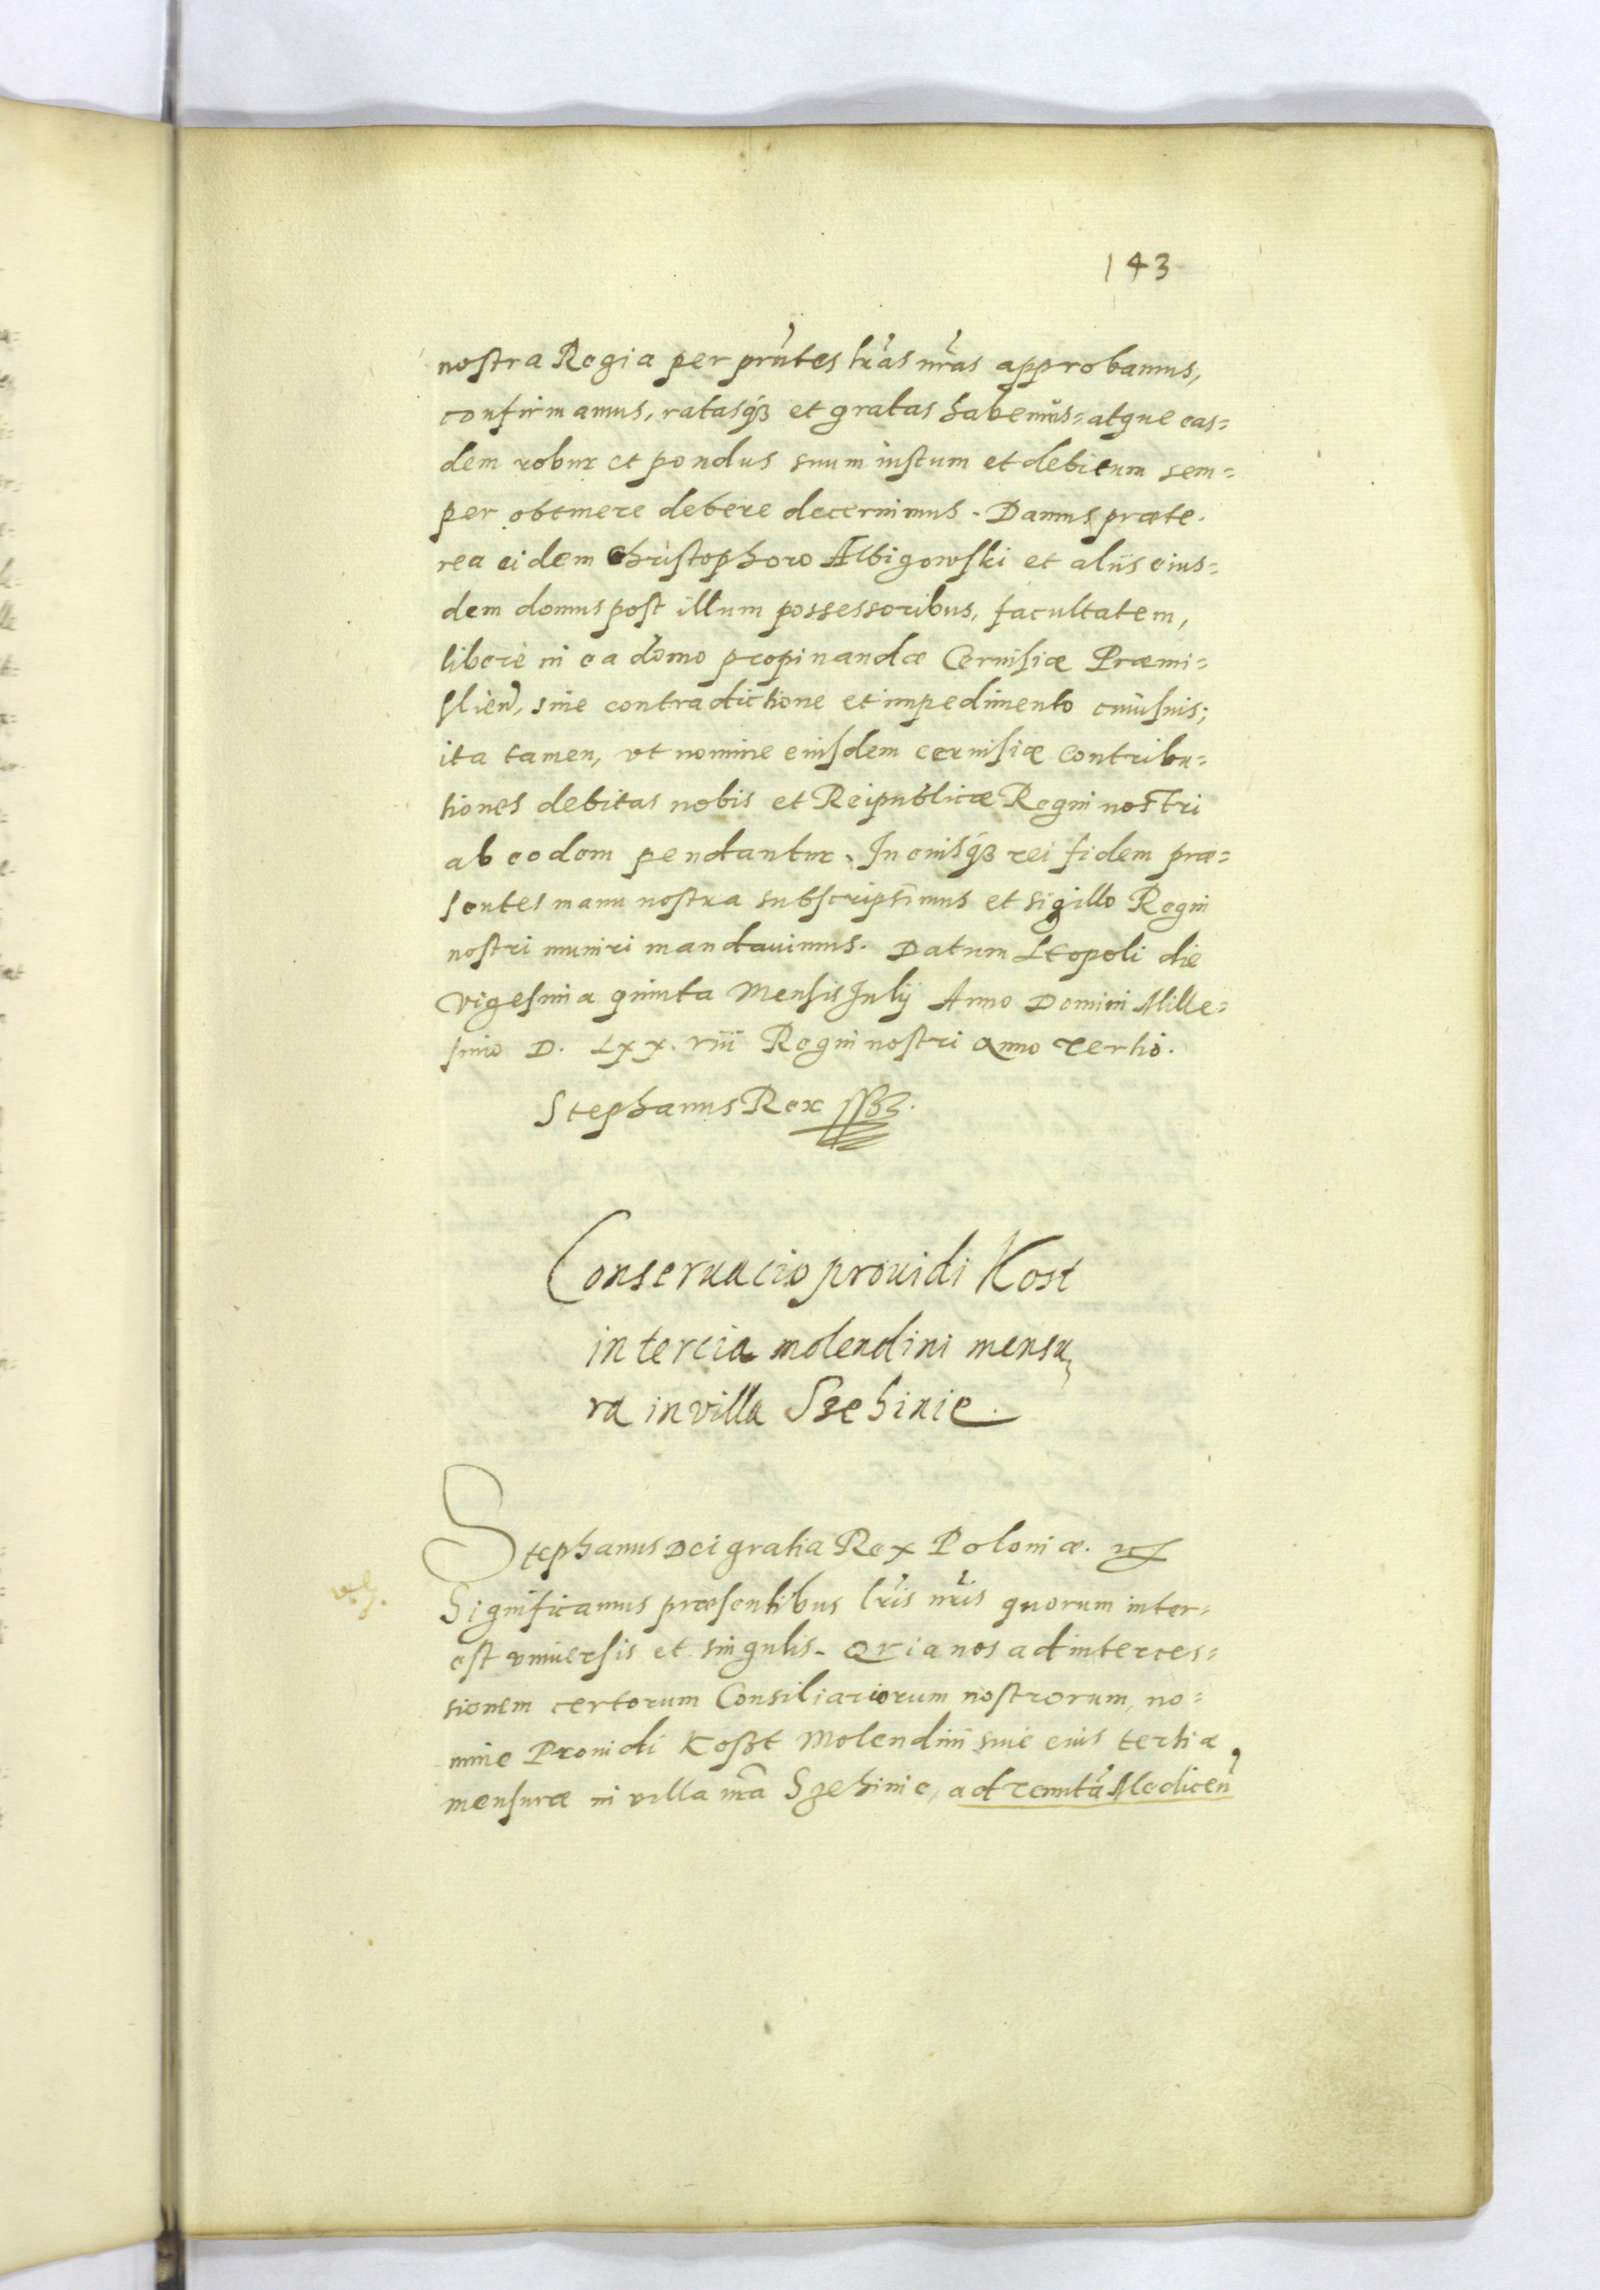 143
nostra Regia per prn̄tes lr̄as nr̄as approbamus,
confirmamus, ratasq₃ et gratas habemus: atque eas=
dem robur et pondus suum iustum et debitum sem=
per obtinere debere decernimus. Damus præte=
rea eidem Christophoro Albigowski et aliis eius=
dem domus post illum possessoribus, facultatem,
libere in ea domo propinandæ Cervisiæ Præmi=
slien̄, sine contradictione et impedimento cuiusuis;
ita tamen, vt nomine eiusdem ceruisiæ contribu=
tiones debitas nobis et Reipublicæ Regni nostri
ab eodem pendantur. In cuisq₃ rei fidem præ=
sentes manu nostra subscripsimus et sigillo Regni
nostri muniri mandauimus. Datum Leopoli die
vigesima quinta Mensis Iulij Anno Domini Mille=
simo D. Lxx. viii Regni nostri Anno tertio.
Stephanus Rex ssb₃.
Conseruacio prouidi Kost
in tercia molendini mensu
ra in villa Szehinie.
Stephanus Dei gratia Rex Poloniæ. etc
Significamus præsentibus lr̄is nr̄is quorum inter=
est vniuersis et singulis. Quia nos ad interces=
sionem certorum Consiliariorum nostrorum, no=
mine Prouidi Koszt Molendini siue eius tertiæ
mensuræ in villa nr̄a Szehinie, ad tenutā Medicen̄